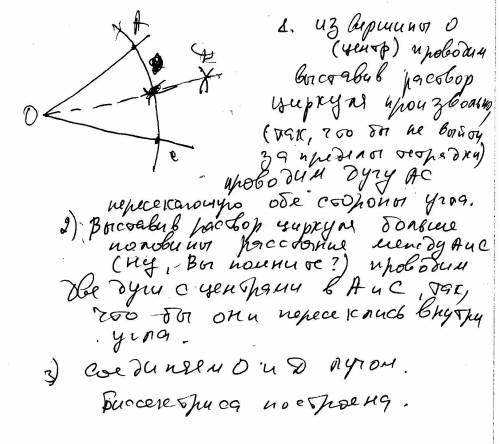 A
O
D
C
1. из вершины О
(центр) проводим
выставив раствор
циркуля произвольно,
(так, что бы не выйти
за пределы тетрадки)
проводим дугу АС
пересекающую обе стороны угла.
2) Выставив раствор циркуля больше
половины расстояние между А и С
(ну, Вы помните?) проводим
две дуги с центрами в А и С, так,
что бы они пересеклись внутри
угла.
3) соединяем О и D лучом.
Биссектриса построена.